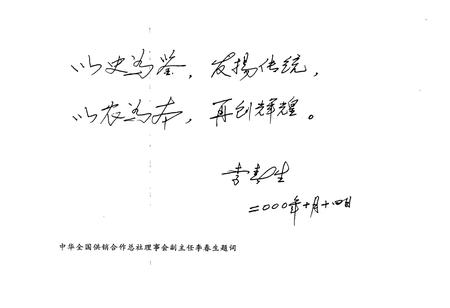 以史为鉴，发揚传统，
以农为本，再创辉煌。
李春生
二000年十月十四日
中华全国供销合作总社理事会副主任李春生题词